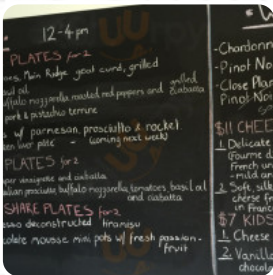 12-4pm
PLATES for 2
Main Ridge goat curd, grilled
oil
buffalo mozzarella, roasted red peppers and grilled ciabatta
pork & pistachio terrine
w/ parmesan, prosciutto & rocket.
(coming next week)
PLATES for 2
vinaigrette and ciabatta
prosciutto, buffalo mozzarella, tomatoes, basil, oil
and ciabatta
SHARE PLATES for 2
deconstructed tiramisu
chocolate mousse mini pots w/ fresh passion-
fruit
-Chardonn
-Pinot No
-Close Plan
Pinot Noi
$11 CHEE
1. Delicate
(fourme d
French un
-mild an
2. Soft, silk
cheese fr
in Franc
$7 KIDS
1. Cheese
2. Vanilla
chocola